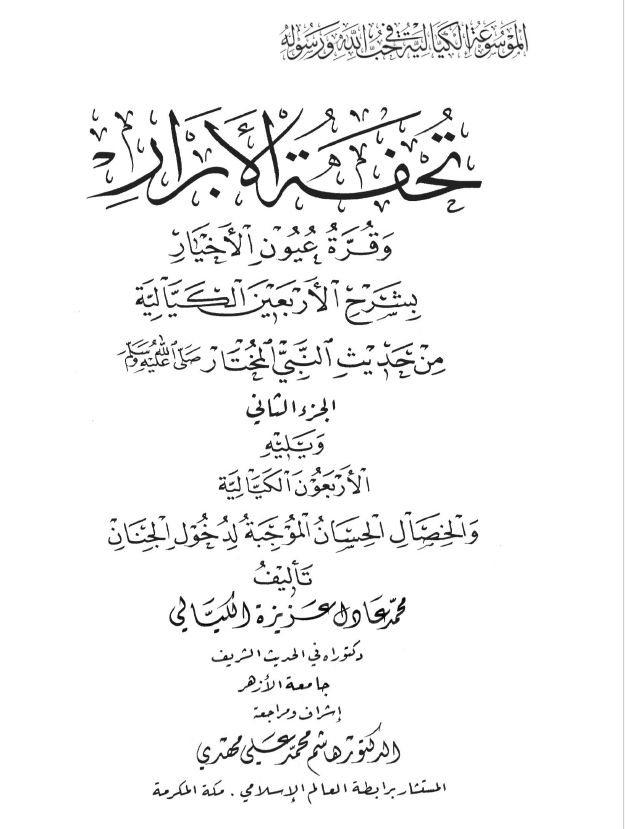 المَوْسُوعَةُ الكَيَّالِيَّةُ فِي حُبِّ اللهِ وَرَسُولِهِ
تُحْفَةُ الأَبْرَارِ
وَقُرَّةُ عُيُونِ الأَخْيَارِ
بِشَرْحِ الأَرْبَعِينَ الكَيَّالِيَّةِ
مِنْ حَدِيثِ النَّبِيِّ المُخْتَارِ صَلَّى اللهُ عَلَيْهِ وَسَلَّمَ
الجزء الثاني
وَيَلِيْهِ
الأَرْبَعُونَ الكَيَّالِيَّة
وَالخِصَالِ الحِسَانُ المُوْجِبَةُ لِدُخُوْلِ الجِنَانِ
تَأْلِيفُ
محمّد عادل عزيزة الكيّالي
دكتوراه في الحديث الشريف
جامعة الأزهر
إشراف ومراجعة
الدكتور هاشم محمّد علي مهدي
المستشار برابطة العالم الإسلامي . مكة المكرمة